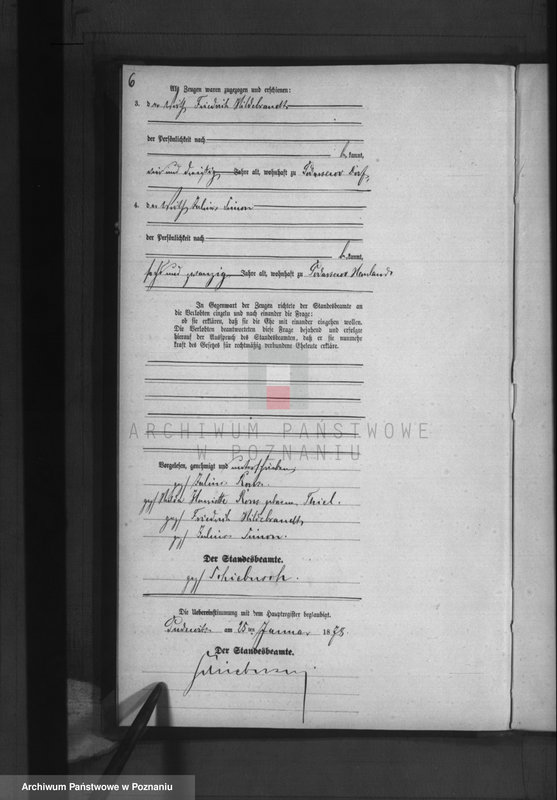 6
Als Zeugen waren zugezogen und erschienen:
3. der Wirth Friedrich Hildebrandt
der Persönlichkeit nach
be kannt,
und dreißig Jahre alt, wohnhaft zu Dorf,
4. der Wirth Julius Simon
der Persönlichkeit nach
be kannt,
sechs und zwanzig Jahre alt, wohnhaft zu Hauland
In Gegenwart der Zeugen richtete der Standesbeamte an
die Verlobten einzeln und nach einander die Frage:
ob sie erklären, daß sie die Ehe mit einander eingehen wollen.
Die Verlobten beantworteten diese Frage bejahend und erfolgte
hierauf der Ausspruch des Standesbeamten, daß er sie nunmehr
kraft des Gesetzes für rechtmäßig verbundene Eheleute erkläre.
ARCHIWUM PAŃSTWOWE
W POZNANIU
Vorgelesen, genehmigt und unterschrieben,
gez/ Julius
gez/ Henriette geborne Thiel.
gez/ Friedrich Hildebrandt,
gez/ Julius Simon.
Der Standesbeamte.
gez/
Die Uebereinstimmung mit dem Hauptregister beglaubigt.
am 25 ten Januar 1878.
Der Standesbeamte.
Archiwum Państwowe w Poznaniu